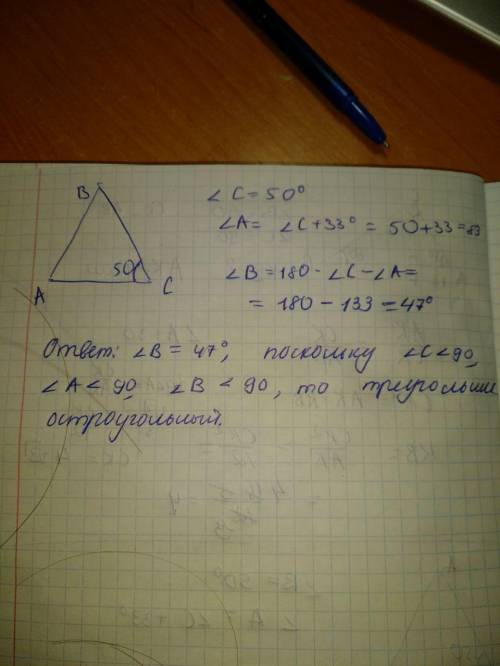 B
50
A
C
∠C = 50°
∠A = ∠C + 33° = 50 + 33 = 83
∠B = 180 - ∠C - ∠A =
= 180 - 133 = 47°
Ответ: ∠B = 47°, поскольку ∠C < 90,
∠A < 90, ∠B < 90, то треугольник
остроугольный.